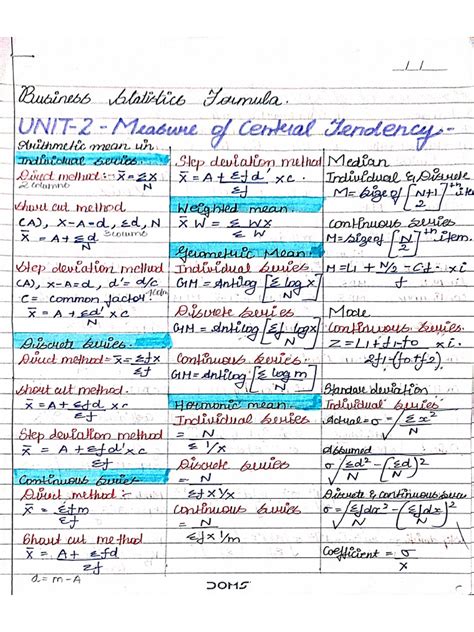 Business Statistics Formula.
UNIT-2 - Measure of Central Tendency:-
Arithmetic mean in
Individual series
Direct method:- x̄ = ΣX / N
2 columns
Short cut method
(A), X-A=d, Σd, N
x̄ = A + Σd / N 3 columns
Step deviation method
(A), x-A=d, d'=d/c
C = common factor
x̄ = A + Σd' / N × C
Discrete series
Direct method = x̄ = Σfx / Σf
Short cut method
x̄ = A + Σfd / Σf
Step deviation method
x̄ = A + Σfd' / Σf × C
Continuous Series
Direct method :-
x̄ = Σfm / Σf
Short cut method
x̄ = A + Σfd / Σf
d = m - A
Step deviation method
x̄ = A + Σfd' / Σf × C.
Weighted mean
x̄ W = Σ WX / Σ W
Geometric Mean
Individual Series
GM = Antilog [Σ log X / N]
Discrete Series
GM = Antilog [Σf log X / N]
Continuous Series
GM = Antilog [Σ log m / N]
Harmonic mean
Individual Series
= N / Σ 1/x
Discrete Series
= N / Σf x 1/x
Continuous Series
= N / Σf x 1/m
Median
Individual & Discrete
M = Size of [N+1 / 2]th item
Continuous Series
M = Size of [N / 2]th item.
M = L1 + N/2 - Cf / f × i
Mode
Continuous Series
Z = L1 + f1-f0 / 2f1-(f0+f2) × i
Standar deviation
Individual Series
Actual = σ = √Σx² / N
Assumed
σ √Σd² / N - (Σd / N)²
Discrete & continuous
σ = √Σfdx² / N - [Σfdx / N]²
Coefficient = σ / X
DOMS